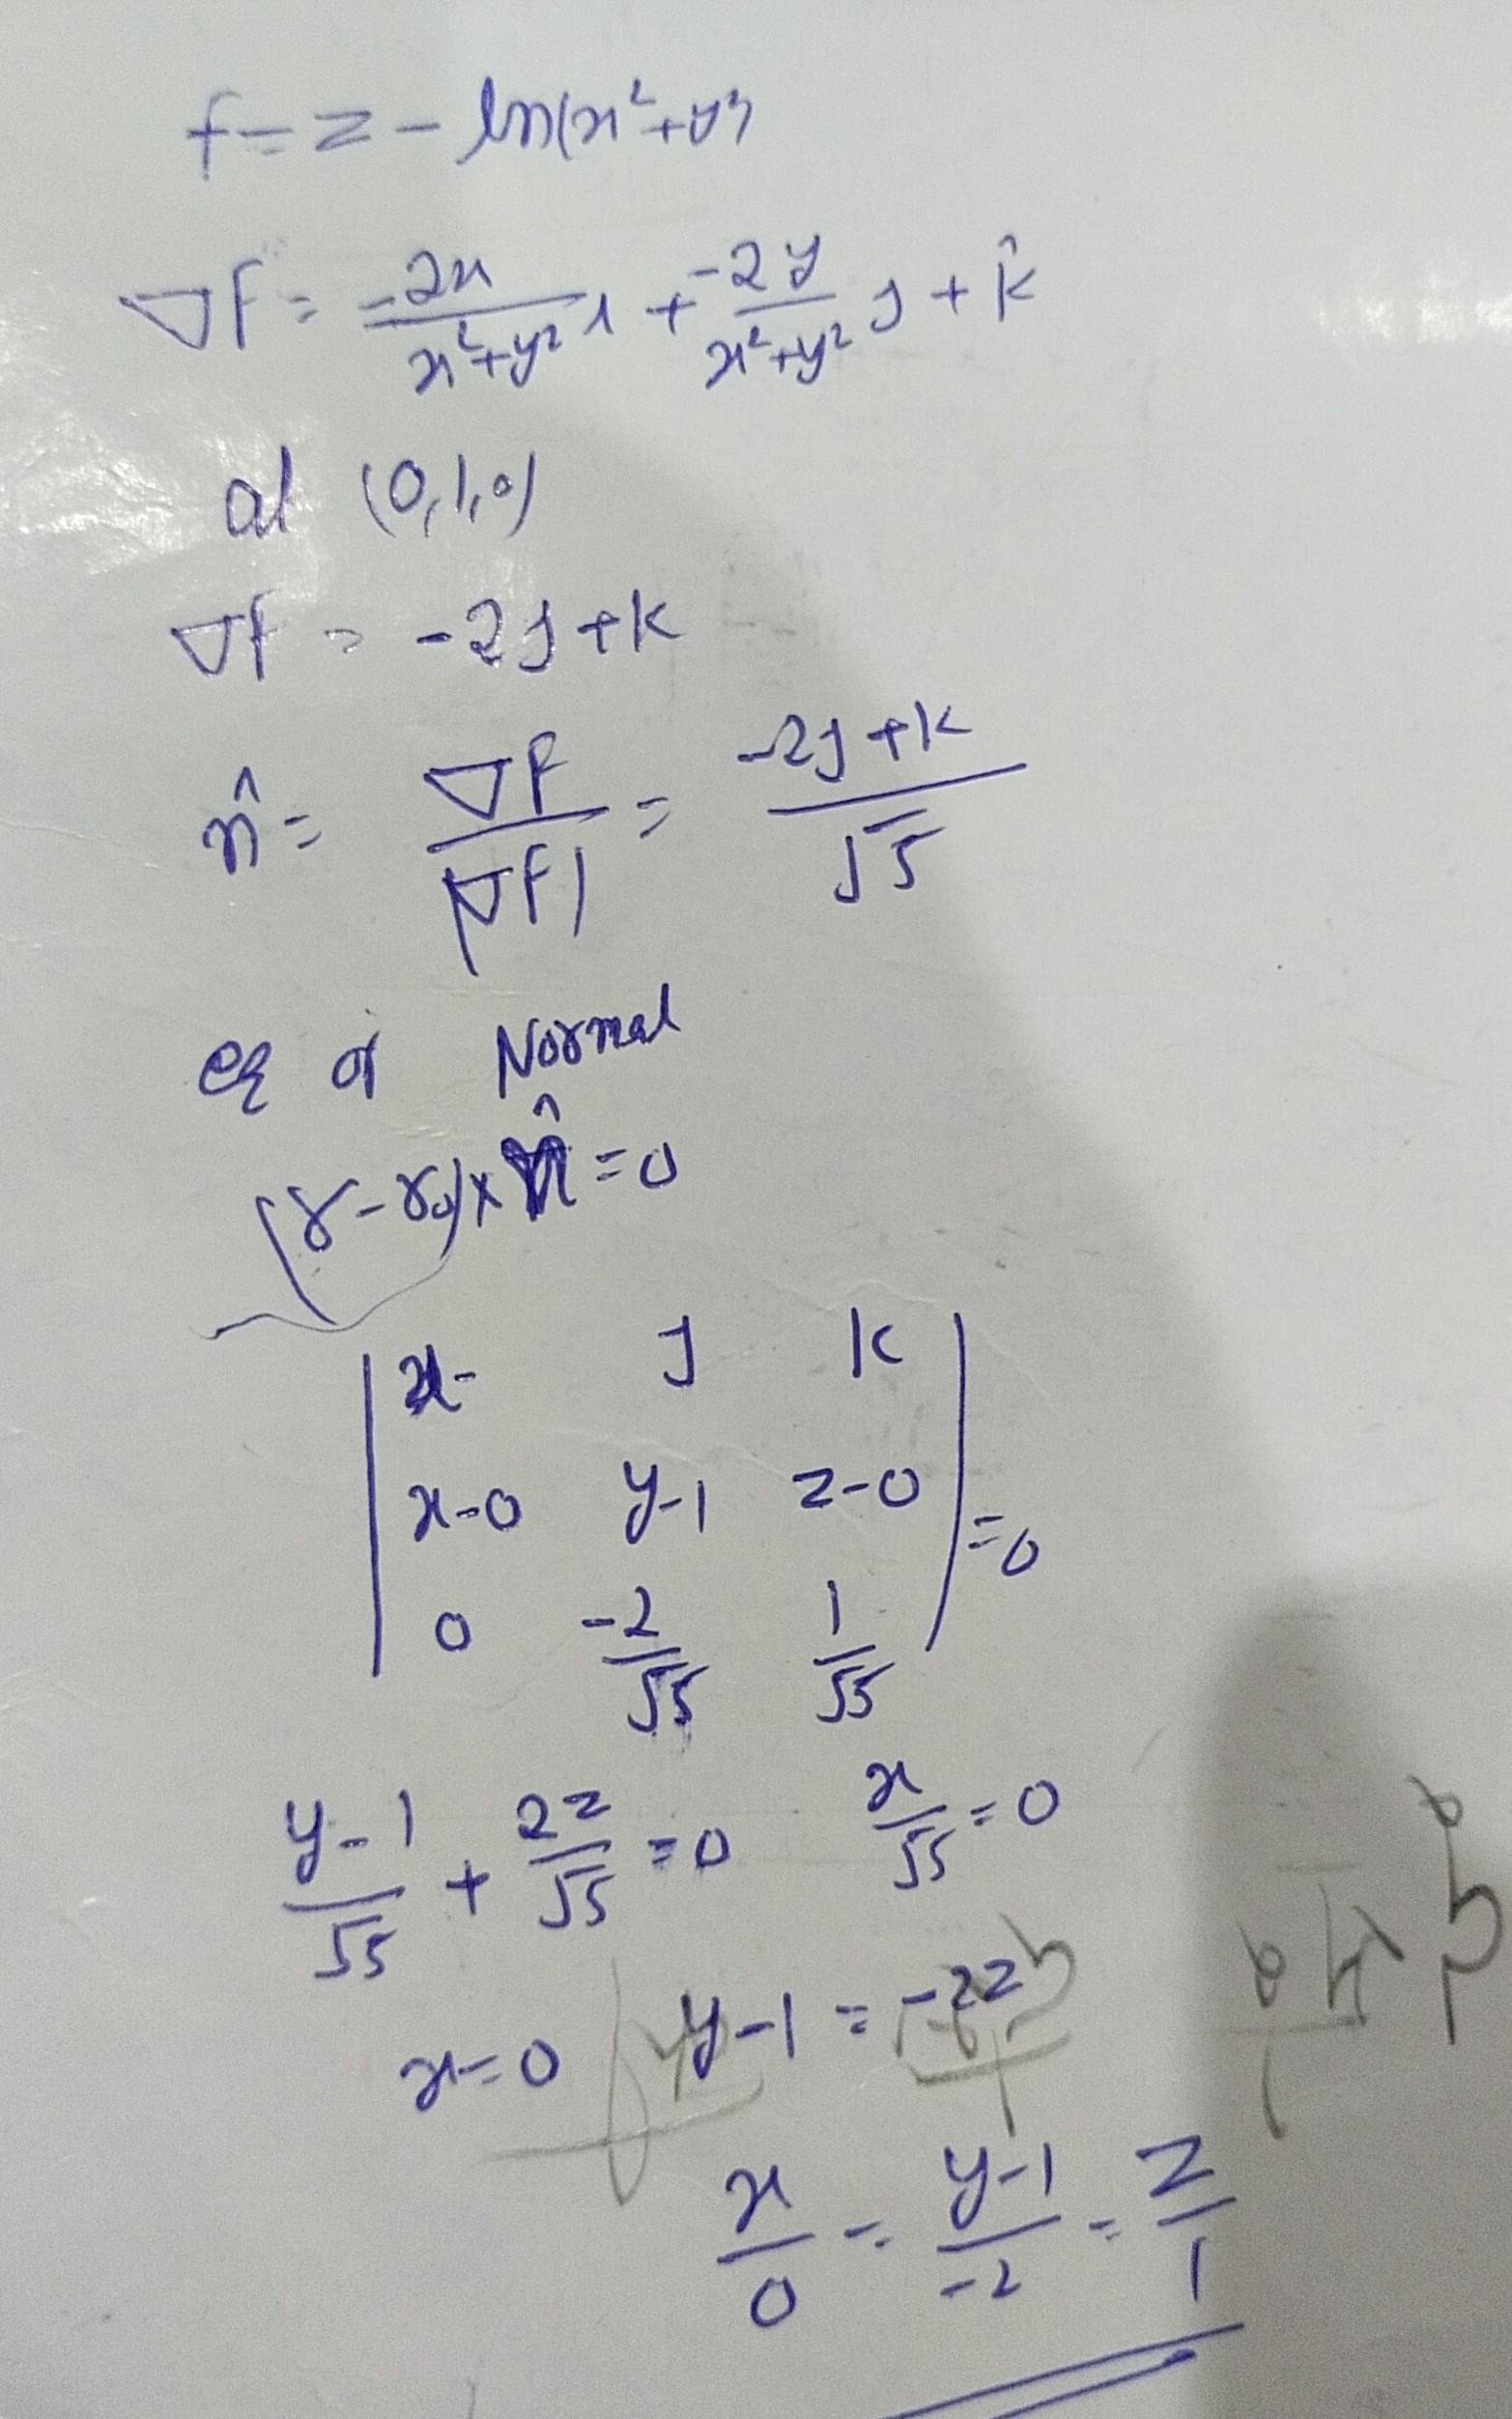 f = z - ln(x²+y²)
∇f = -2x/(x²+y²) i + -2y/(x²+y²) j + k̂
at (0,1,0)
∇f = -2j+k
n̂ = ∇f/|∇f| = (-2j+k)/√5
eq of Normal
(r-r₀)×n̂=0
| i j k |
| x-0 y-1 z-0 | =0
| 0 -2/√5 1/√5 |
(y-1)/√5 + 2z/√5 = 0 x/√5 = 0
x=0 y-1 = -2z
x/0 = (y-1)/-2 = z/1